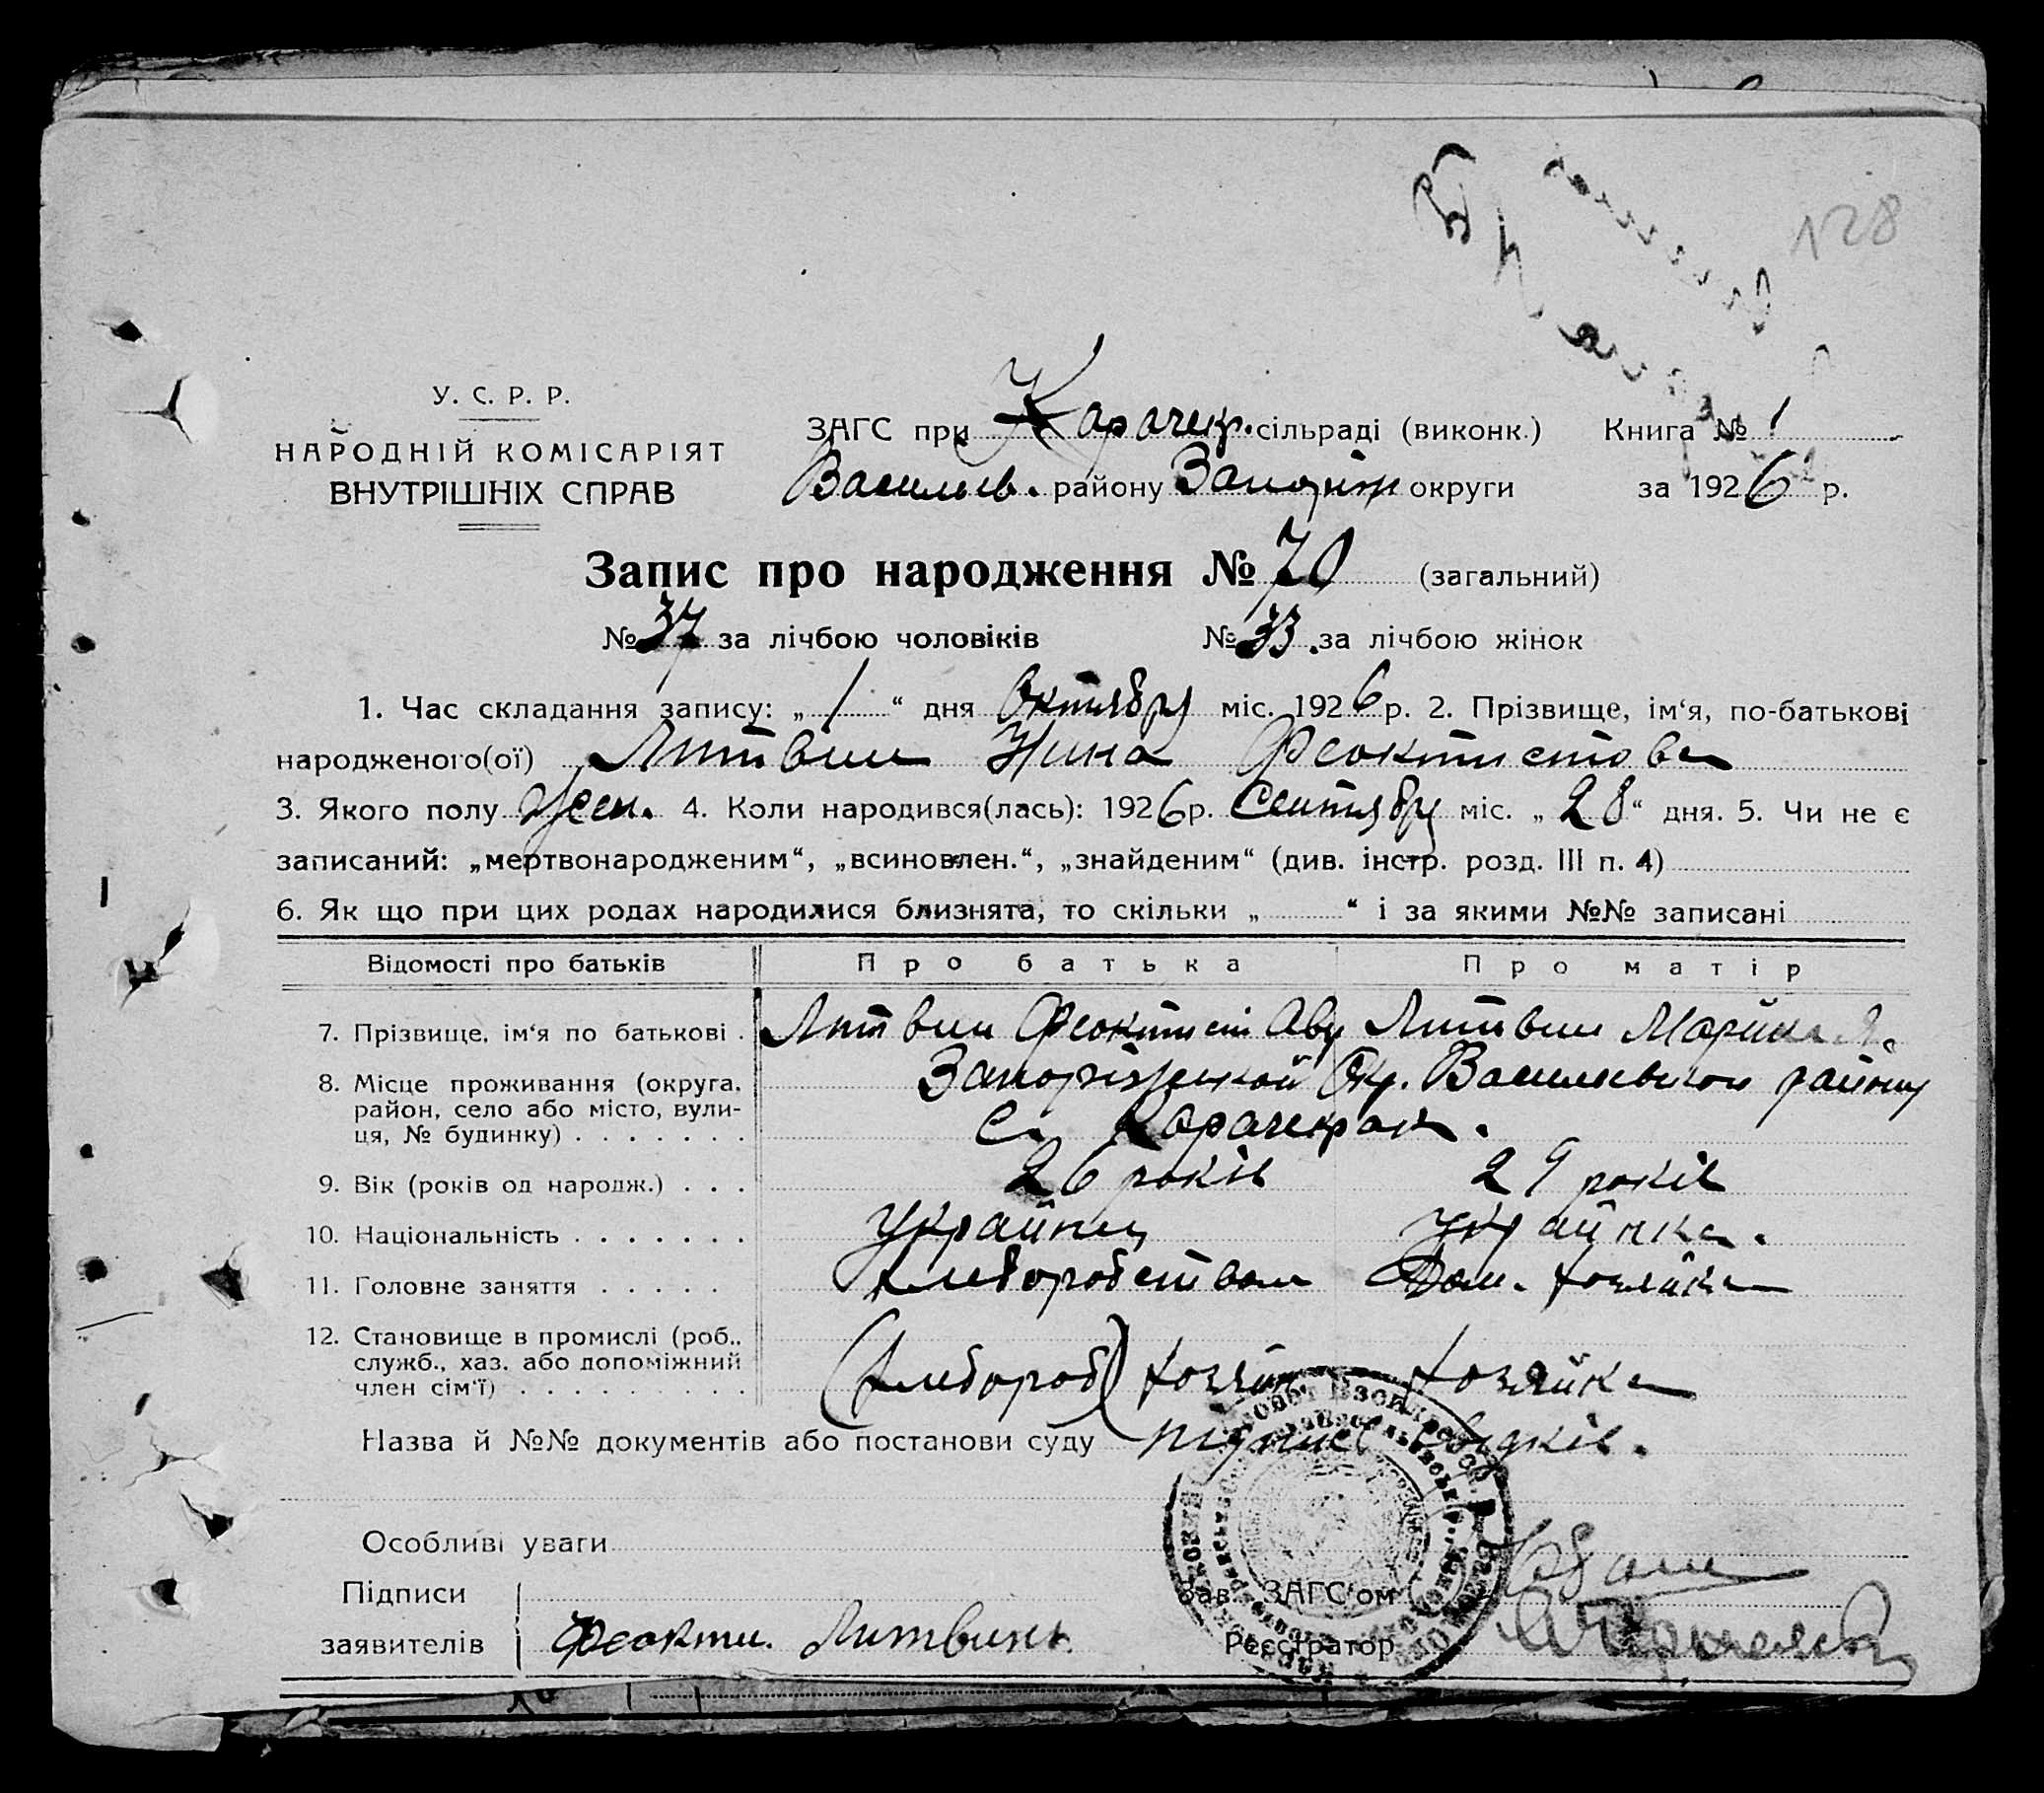 128
У. С. Р. Р.
НАРОДНІЙ КОМІСАРІЯТ
ВНУТРІШНІХ СПРАВ
ЗАГС при Карачекр. сільраді (виконк.) Книга № 1
Васильев. району Запоріж округи за 1926 р.
Запис про народження № 70 (загальний)
№ 37 за лічбою чоловіків № 33. за лічбою жінок
1. Час складання запису: „ 1 “ дня Октября міс. 1926 р. 2. Прізвище, ім‘я, по-батькові
народженого(ої) Литвин Нина Феоктистова
3. Якого полу жен. 4. Коли народився(лась): 1926 р. Сентября міс. „ 28 “ дня. 5. Чи не є
записаний: „мертвонародженим“, „всиновлен.“, „знайденим“ (див. інстр. розд. III п. 4)
6. Як що при цих родах народилися близнята, то скільки „ “ і за якими №№ записані
Відомості про батьків Про батька Про матір
7. Прізвище, ім‘я по батькові . Литвин Феоктист Ав Литвин Марина
8. Місце проживання (округа, Запоріжской Окр. Васильевскои району
район, село або місто, вули-
ця, № будинку) . . . . . . . с. Карачекрак.
9. Вік (років од народж.) . . . 26 років 29 років
10. Національність . . . . . . . Украйнец Украйнка.
11. Головне заняття . . . . . хлеборобством Дом. хозяйка
12. Становище в промислі (роб.,
служб., хаз. або допоміжний (хлебороб) хозяин хозяйка
член сім‘ї) . . . . . . . . .
Назва й №№ документів або постанови суду підпис свідків.
Особливі уваги
Підписи
Зав. ЗАГС‘ом
заявителів Феокти. Литвинъ Реєстратор